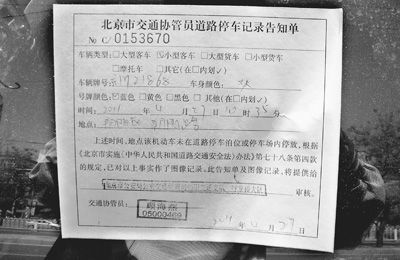 北京市交通协管员道路停车记录告知单
No C/0153670
车辆类型:□大型客车 ☑小型客车 □大型货车 □小型货车
□摩托车 □其它(在□内划√)
车辆牌号: 车身颜色:
号牌颜色:☑蓝色 □黄色 □黑色 □其他(在□内划√)
时间: 年 4 月 27 日 10 时 35 分
地点:
上述时间、地点该机动车未在道路停车泊位或停车场内停放,根据
《北京市实施〈中华人民共和国道路交通安全法〉办法》第七十八条第四款
的规定,已对以上事实作了图像记录。此告知单及图像记录,将提供给
审核。
交通协管员:
05000469
年 4 月 27 日